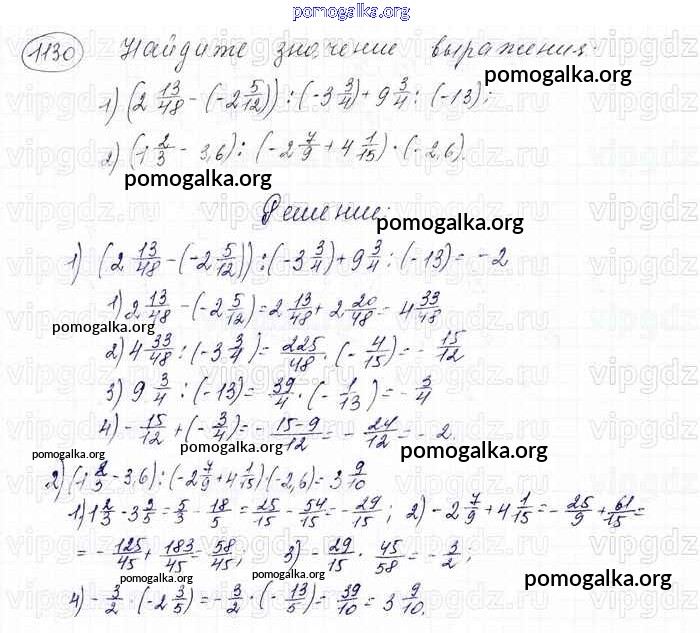 pomogalka.org
1130 Найдите значение выражения.
pomogalka.org
1) (2 13/48 - (-2 5/12)) : (-3 3/4) + 9 3/4 : (-13);
2) (1 2/3 - 3,6) : (-2 7/9 + 4 1/15) · (-2,6).
pomogalka.org
Решение:
pomogalka.org
1) (2 13/48 - (-2 5/12)) : (-3 3/4) + 9 3/4 : (-13) = -2
1) 2 13/48 - (-2 5/12) = 2 13/48 + 2 20/48 = 4 33/48
pomogalka.org
2) 4 33/48 : (-3 3/4) = 225/48 · (- 4/15) = - 15/12
pomogalka.org
3) 9 3/4 : (-13) = 39/4 · (- 1/13) = - 3/4
4) - 15/12 + (- 3/4) = - 15-9/12 = - 24/12 = -2.
pomogalka.org
pomogalka.org
2) (1 2/3 - 3,6) : (-2 7/9 + 4 1/15) (-2,6) = 3 9/10
pomogalka.org
1) 1 2/3 - 3 3/5 = 5/3 - 18/5 = 25/15 - 54/15 = - 29/15; 2) -2 7/9 + 4 1/15 = - 25/9 + 61/15 =
= - 125/45 + 183/45 = 58/45; 3) - 29/15 · 45/58 = - 3/2;
pomogalka.org
pomogalka.org
pomogalka.org
4) - 3/2 · (-2 3/5) = - 3/2 · (- 13/5) = 39/10 = 3 9/10.